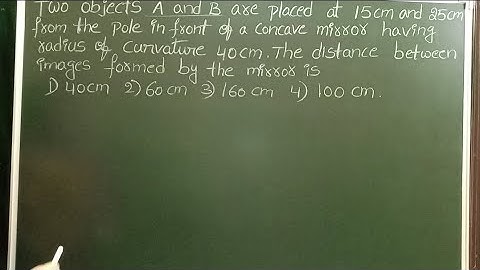 Two objects A and B are placed at 15cm and 25cm
from the pole in front of a concave mirror having
radius of curvature 40cm. The distance between
images formed by the mirror is
1) 40cm 2) 60cm 3) 160cm 4) 100 cm.